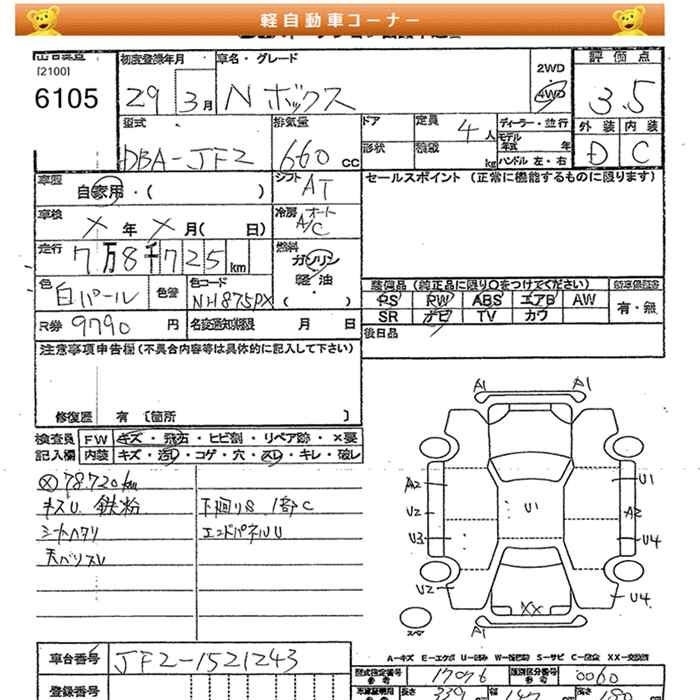 軽自動車コーナー
[2100]
6105
初度登録年月
29 3月
車名・グレード
Nボックス
2WD
・
4WD
評価点
3.5
外装 内装
D C
型式
DBA-JF2
排気量
660 cc
ドア
形状
定員 4人
積載 kg
ディーラー・並行
モデル年式 年
ハンドル 左・右
車歴
自家用・( )
シフト AT
セールスポイント (正常に機能するものに限ります)
車検
X年 X月( 日)
冷房 オート A/C
走行
7万8千725km
燃料
ガソリン
軽油
・( )
色
白パール
色替
色コード
NH875PX
装備品 (純正品に限り○をつけてください)
PS PW ABS エアB AW
SR ナビ TV カワ
有・無
R券 9790円
名変通知期限 月 日
後日品
注意事項申告欄 (不具合内容等は具体的に記入して下さい)
修復歴 有 〔箇所 〕
検査員記入欄
FW キズ・飛石・ヒビ割・リペア跡・×要
内装 キズ・汚レ・コゲ・穴・スレ・キレ・破レ
Ⓧ78720km
キズU 鉄粉
シートヘタリ
天ベリスレ
下廻りS 1部C
エンドパネルU
A1 A1
A2 U1
U2 U1 A2
U3 U4
U2 XX U4
A1
スペア
A-キズ E-エクボ U-凹み W-補修跡 S-サビ C-腐食 XX-交換済
車台番号
JF2-1521243
登録番号
型式指定番号 参考 17076
類別区分番号 参考 0060
長さ 339 幅 高さ 180